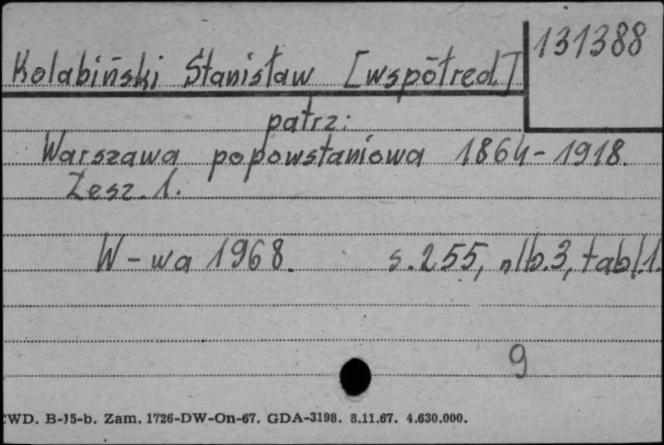 Kolabiński Stanisław [współred]
131388
patrz:
Warszawa popowstaniowa 1864-1918.
Zesz. 1.
W-wa 1968. s.255, nlb.3, tabl.1.
9
CWD. B-15-b. Zam. 1726-DW-On-67. GDA-3198. 8.11.67. 4.630.000.